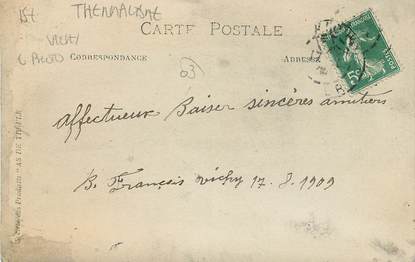 15€ THERMALISME
VICHY
CARTE POSTALE
CORRESPONDANCE
ADRESSE
03
5c
POSTES
affectueux Baiser sincères amitiers
B. François Vichy 17. 8. 1909
Produits "AS DE TREFLE"